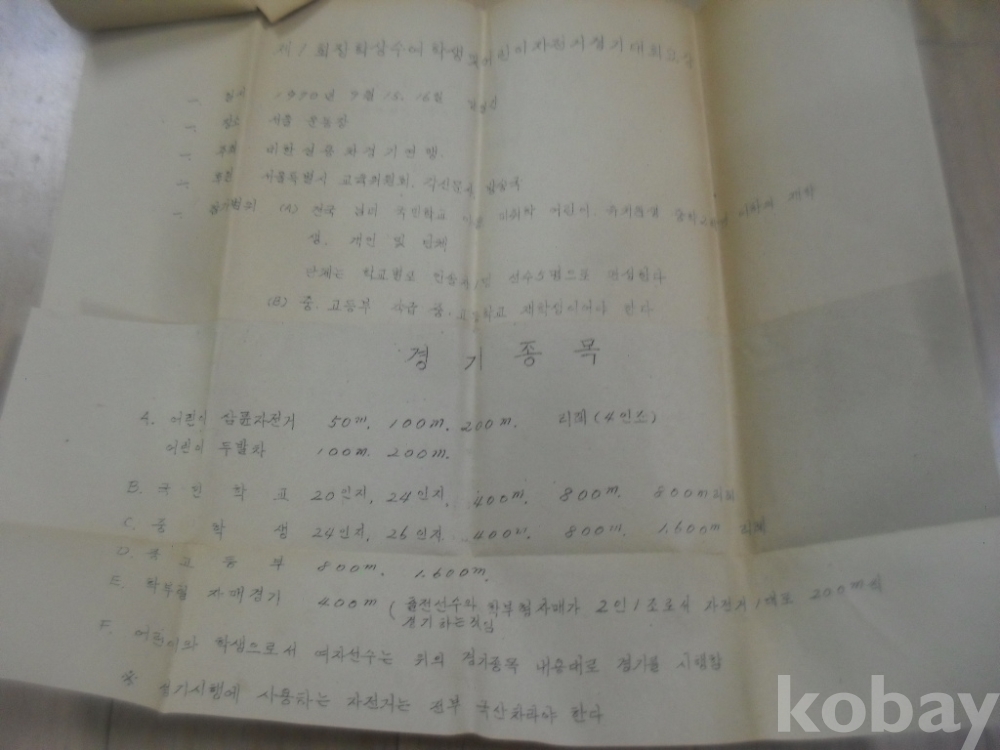 제1회 장학상수여 학생 및 어린이 자전거경기대회요강
一. 일시 1970년 9월 15. 16일
一. 장소 서울 운동장
一. 주최 대한 실용 자전거 경기 연맹
一. 후원 서울특별시 교육위원회. 각신문사
一. 참가범위 (A) 전국 남녀 국민학교 미취학 어린이. 재학
생. 개인 및 단체
단체는 학교별로 선수5명으로 편성한다
(B) 중. 고등부 각급 중. 고등학교 재학생이어야 한다
경기종목
A. 어린이 삼륜자전거 50m. 100m. 200m. 리레(4인조)
어린이 두발차 100m. 200m.
B. 국민학교 20인치, 24인치, 400m. 800m. 800m 리레
C. 중학생 24인치, 26인치. 400m. 800m. 1.600m 리레
D. 고등부 800m. 1.600m.
E. 학부형 자매경기 400m (출전선수와 학부형자매가 2인1조로서 자전거1대로 200m식
경기하는것임
F. 어린이와 학생으로서 여자선수는 위의 경기종목 내용대로 경기를 시행함
※ 경기시행에 사용하는 자전거는 전부 국산차라야 한다
kobay